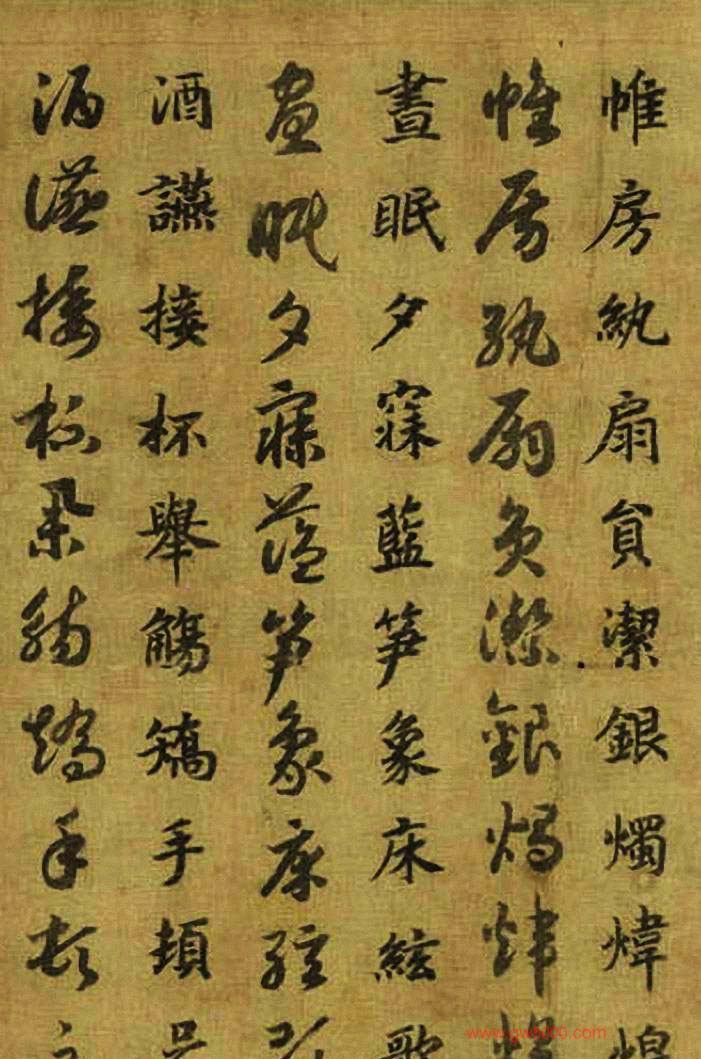 帷房紈扇貟潔銀燭煒煌
帷房紈扇員潔銀燭煒煌
晝眠夕寐藍笋象床絃歌
晝眠夕寐藍笋象床絃
酒讌接杯舉觴矯手頓足
酒讌接杯舉觴矯手頓